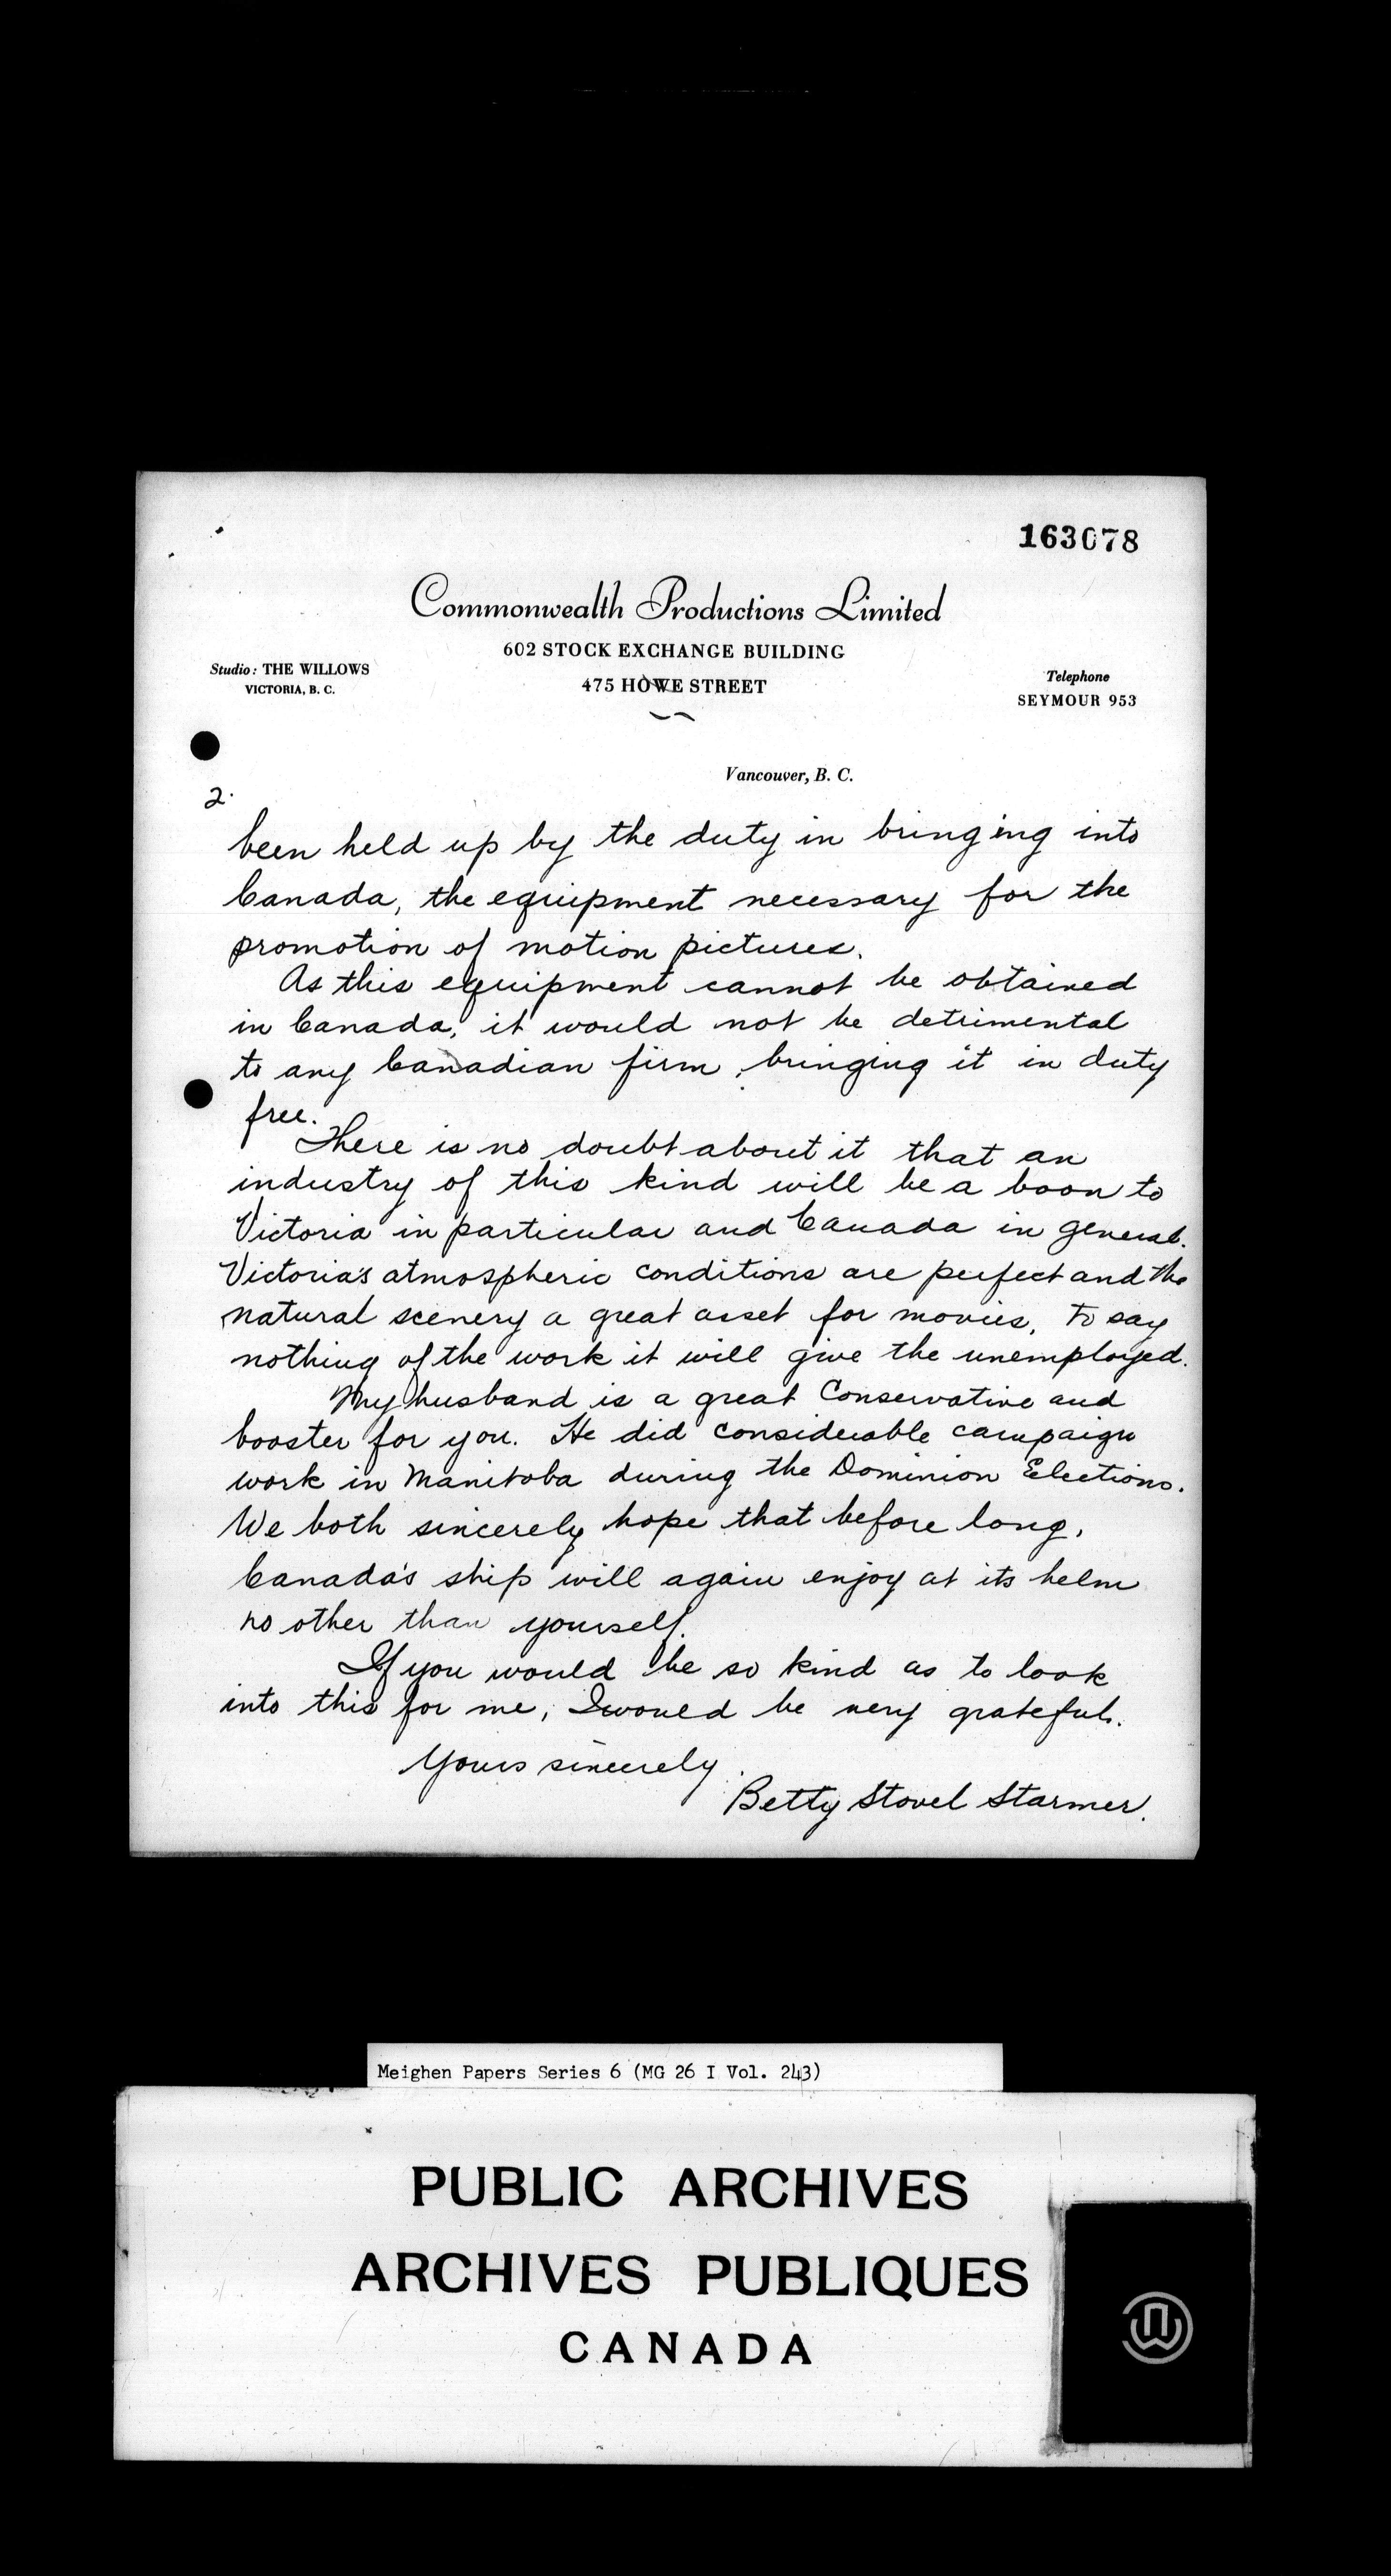 163078
Commonwealth Productions Limited
602 STOCK EXCHANGE BUILDING
Studio: THE WILLOWS
VICTORIA, B. C.
475 HOWE STREET
Telephone
SEYMOUR 953
Vancouver, B. C.
2.
been held up by the duty in bringing into
Canada, the equipment necessary for the
promotion of motion pictures.
As this equipment cannot be obtained
in Canada, it would not be detrimental
to any Canadian firm, bringing it in duty
free.
There is no doubt about it that an
industry of this kind will be a boon to
Victoria in particular and Canada in general.
Victoria's atmospheric conditions are perfect and the
natural scenery a great asset for movies, to say
nothing of the work it will give the unemployed.
My husband is a great Conservative and
booster for you. He did considerable campaign
work in Manitoba during the Dominion Elections.
We both sincerely hope that before long,
Canada's ship will again enjoy at its helm
no other than yourself.
If you would be so kind as to look
into this for me, I would be very grateful.
Yours sincerely.
Betty Stovel Starmer.
Meighen Papers Series 6 (MG 26 I Vol. 243)
PUBLIC ARCHIVES
ARCHIVES PUBLIQUES
CANADA